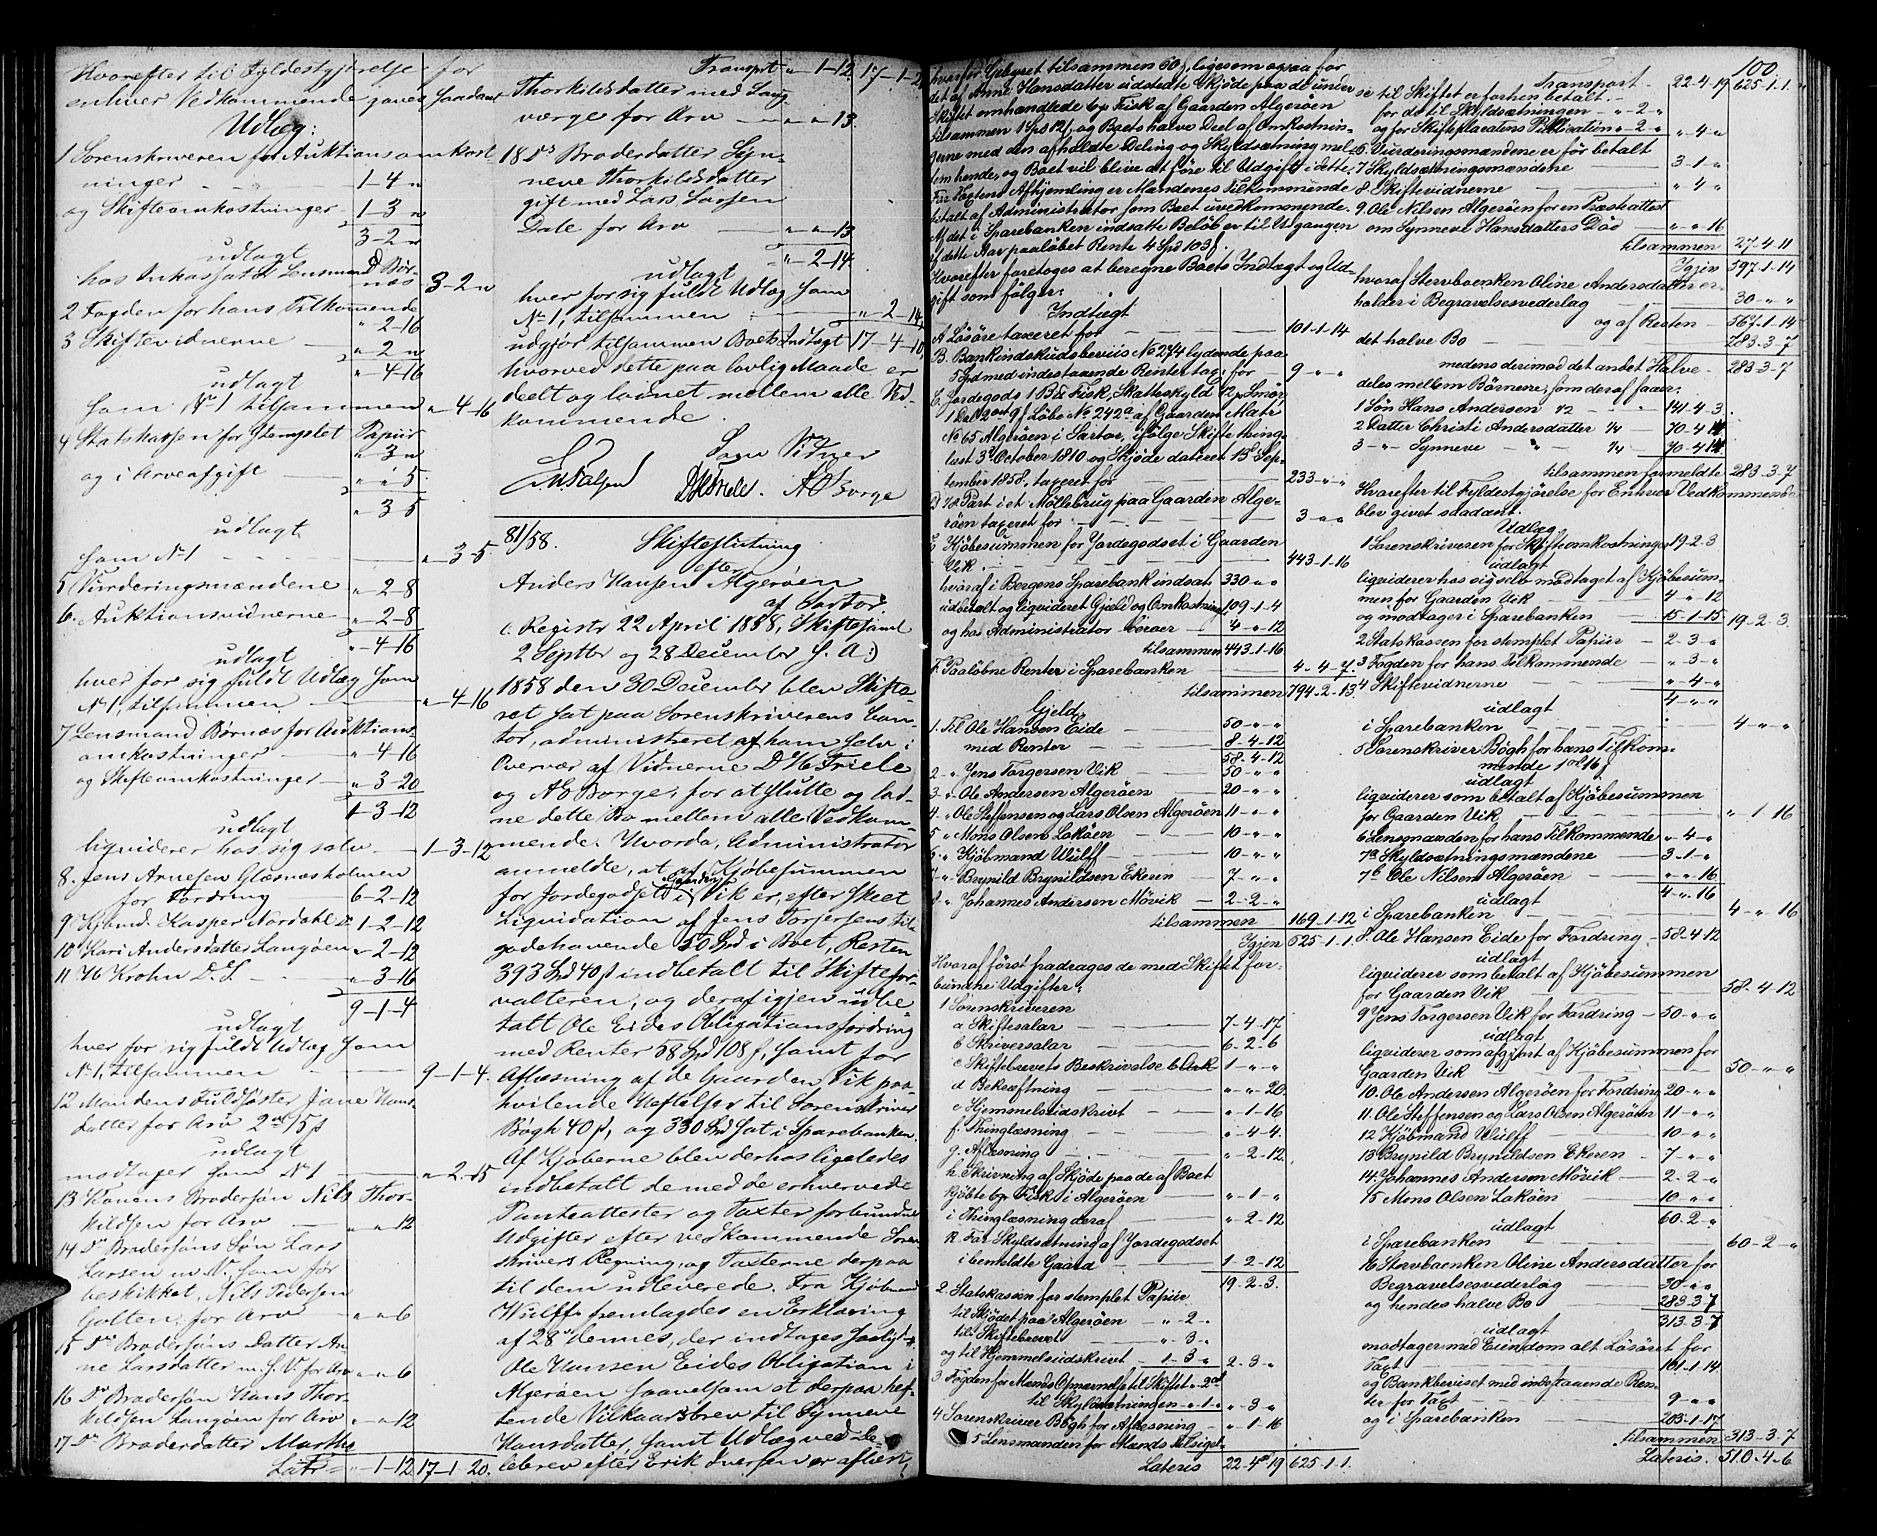 Hvorefter til Fyldestgjørelse for
enhver Vedkommende gaves saadant
Udlæg:
1 Sorenskriveren for Auktionsomkost
ninger 1-4-"
og Skifteomkostninger 1-3-"
3-2-"
udlagt
hos Inkassator Lensmand Bør-
næs 3-2-"
2 Fogden for hans Tilkommende
"-2-16
3 Skiftevidnerne "-2-"
"-4-16
udlagt
som No 1 tilsammen "-4-16
4 Statskassen for stemplet Papiir
"-3-"
og i Arveafgift "-"-5
"-3-5
udlagt
som No 1 "-3-5
5 Vurderingsmændene "-2-8
6. Auktionsvidnerne "-2-8
"-4-16
udlagt
hver for sig fuldt Udlæg som
No 1, tilsammen "-4-16
7 Lensmand Børnæs for Auktions
omkostninger "-4-16
og Skifteomkostninger "-3-20
1-3-12
udlagt
liqviderer hos sig selv 1-3-12
8. Jens Arnesen Glæsnæsholmen
for Fordring 6-2-12
9 Kjbmd. Kasper Nordahl 1-2-12
10 Kari Andersdatter Langøen "-2-12
11 H Krohn D. S. "-3-16
9-1-4
udlagt
hver for sig fuldt Udlæg som
No 1, tilsammen 9-1-4.
12 Mandens Fuldsøster Jane Hans-
datter for Arv 2 15 ß
udlagt
modtager som No 1 "-2-15
13 Konens Brodersøn Nils Thor-
kildsen for Arv "-"-12
14 Do Brodersøns Søn Lars
Larsen
beskikket, Nils Pedersen
Golten, for Arv "-"-6
15 Do Brodersøns Datter An-
ne Larsdatter m. s. V. for Arv "-"-6
16 Do Brodersøn Hans Thor-
kildsen Langøen for Arv "-"-12
17 Do Broderdatter Martha
Latr "-1-12 17-1-20.
Transprt "-1-12 17-1-20
Thorkildsdatter med Laug-
værge for Arv "-"-13
18 Do Broderdatter Syn-
neve Thorkildsdatter
gift med Lars Larsen
Dale for Arv "-"-13
"-2-14
udlagt
hver for sig fuldt Udlæg som
No 1, tilsammen "-2-14
udgjør tilsammen Boets Indtægt 17-4-10
hvorved dette paa lovlig Maade er
deelt og lodnet mellem alle Ved-
kommende.
Som Vidner
D H Friele. A O Borge
81/58. Skifteslutning
efter
Anders Hansen Algerøen
af Sartor.
(: Registr 22 April 1858, Skiftesaml
2 Septbr og 28 December s. A:)
1858 den 30 December blev Skifte-
ret sat paa Sorenskriverens Con-
tor, administreret af ham selv i
Overvær af Vidnerne D H Friele
og A O Borge, for at slutte og lod-
ne dette Bo mellem alle Vedkom-
mende. Hvorda, Administrator
anmeldte, at af Kjøbesummen
for Jordegodset i Gaarden Vik er, efter skeet
Liqvidation af Jens Torjersens til-
godehavende 50 Spd i Boet, Resten
393 Spd 40 ß indbetalt til Skiftefor-
valteren, og deraf igjen udbe-
talt Ole Eides Obligationsfordring
med Renter 58 Spd 108 ß, samt for
Aflæsning af de Gaarden Vik paa
hvilende Heftelser til Sorenskriver
Bøgh 40 ß, og 330 Spd sat i Sparebanken.
Af Kjøberne blev derhos ligeledes
indbetalt de med de erhvervede
Panteattester og Taxter forbundne
Udgifter efter vedkommende Soren-
skrivers Regning, og Taxterne derpaa
til dem udleverede. Fra Kjøbmand
Wulff fremlagdes en Erklæring
af 28de dennes, der indtages saalydt
Ole Hansen Eides Obligation i
Algerøen saavelsom et derpaa hef-
tende Vilkaarsbrev til Synneve
Hansdatter, samt Udlæg ved De-
lebrev efter Erik Iversen er aflæst,
100.
hvorfor Gebyret tilsammen 60 ß, ligesom ogsaa for
det af Anne Hansdatter udstedte Skjøde paa de under
Skiftet omhandlede bp Fisk af Gaarden Algerøen
tilsammen 1 Spd 12 ß, og Boets halve Deel af Omkostnin-
gerne med den afholdte Deling og Skyldsætning mel-
lem hende, og Boet vil blive at føre til Udgift i dette.
For Taxtens Afhjemling er Mændenes Tilkommende
betalt af Administrator som Boet uvedkommende.
Af det i Sparebanken indsatte Beløb er til Udgangen
af dette Aar paaløbet Rente 4 Spd 103 ß.
Hvorefter foretoges at beregne Boets Indtægt og Ud-
gift som følger:
Indtægt
A Løsøre taxeret for 101-1-14
B. Bankindskudsbeviis No 274 lydende paa
5 Spd med indestaaende Renter tag: for 9-"-"
C. Jordegods 1 Bp Fisk, Skatteskyld
Løbe No 242a af Gaarden Matr
No 65 Algerøen i Sartor, ifølge Skifte thing-
læst 3 October 1810 og Skjøde dateret 15 Sep-
tember 1858, taxeret for 233-"-"
D 1/2 Part i et Møllebrug paa Gaarden Alge-
røen taxeret for 3-"-"
E Kjøbesummen for Jordegodset i Gaarden
Vik 443-1-16
hvoraf i Bergens Sparebank indsat 330-"-"
udbetalt og liqvideret Gjeld og Omkostning 109-1-4
og hos Administrator beroer 4-"-12
tilsammen 443-1-16
F. Paaløbne Renter i Sparebanken 4-4-7.
tilsammen 794-2-13
Gjeld
1. Til Ole Hansen Eide 50-"-"
med Renter 8-4-12
58-4-12
2 " Jens Torgersen Vik 50-"-"
3 " Ole Andersen Algerøen 20-"-"
4 " Ole Steffensen og Lars Olsen Algerøen 11-"-"
5 " Mons Olsen Lokøen 10-"-"
6 " Kjøbmand Wulff 10-"-"
7 " Brynild Brynildsen Ekeren 7-"-"
8 " Johannes Andersen Møvik 2-2-"
tilsammen 169-1-12
Igjen 625-1-1.
Hvoraf først fradrages de med Skiftet for-
bundne Udgifter:
1 Sorenskriveren
a Skiftesalar 7-4-17
b Skriversalar 6-2-6
c Skiftebrevets Beskrivelse 6 Ark 1-"-"
d Bekræftning "-"-20
e Hjemmelsudskrivt "-1-16
f Thinglæsning "-4-4.
g. Aflæsning "-2-12.
h Skrivning af Skjøde paa de af Boet
kjøbte bp Fisk i Algerøen "-1-"
i Thinglæsning deraf "-2-12
k For Skyldsætning af Jordegodset
i bemeldte Gaard 1-2-12
19-2-3.
2 Statskassen for stemplet Papiir
til Skjødet paa Algerøen "-2-"
til Skiftebrevet "-3-"
og til Hjemmelsudskrivt 1-3-" 2-3-"
3 Fogden for Mænds Opnævnelse til Skiftet "-2-"
til Skyldsætningen "-1-" "-3-"
4 Sorenskriver Bøgh for Aflæsning "-1-16
5 Lensmanden for Mænds Tilsigel-
Lateris 22-4-19 625-1-1.
Transport 22-4-19 625-1-1.
se til Skiftet er forhen betalt.
for do til Skyldsætningen "-2-"
og for Skifteplacatens Publication "-2-" "-4-"
6 Vurderingsmændene er før betalt
7 Skyldsætningsmændene 3-1-"
8. Skiftevidnerne "-4-"
9. Ole Nilsen Algerøen for en Præsteattest
om Synneve Hansdatters Død "-"-16
tilsammen 27-4-11
Igjen 597-1-14
hvoraf Stervboenken Oline Andersdatter er-
holder i Begravelsesvederlag 30-"-"
og af Resten 567-1-14
det halve Bo 283-3-7
medens derimod det andet Halve 283-3-7
deles mellem Børnene, som deraf faaer:
1 Søn Hans Andersen 1/2 141-4-3
2 Datter Christi Andersdatter 1/4 70-4-14
3 " Synneve " 1/4 70-4-14
tilsammen formeldte 283-3-7
Hvorefter til Fyldestgjørelse for Enhver Vedkommende
blev givet saadant:
Udlæg
1 Sorenskriveren for Skifteomkostninger 19-2-3
udlagt
liqviderer hos sig selv modtaget af Kjøbesum-
men for Gaarden Vik 4-"-12
og modtager i Sparebanken 15-1-15 19-2-3.
2 Statskassen for stemplet Papiir 2-3-"
3 Fogden for hans Tilkommende "-3-"
4 Skiftevidnerne "-4-"
4-"-"
udlagt
i Sparebanken 4-"-"
5 Sorenskriver Bøgh for hans Tilkom-
mende 1 ort 16 ß
udlagt
liqviderer som betalt af Kjøbesummen
for Gaarden Vik "-1-16
6 Lensmanden for hans Tilkommende "-4-"
7a Skyldsætningsmændene 3-1-"
7b Ole Nilsen Algerøen "-"-16
4-"-16
udlagt
i Sparebanken 4-"-16
8. Ole Hansen Eide for Fordring 58-4-12
udlagt
liqviderer som betalt af Kjøbesummen
for Gaarden Vik 58-4-12
9 Jens Torgersen Vik for Fordring 50-"-"
udlagt
liqviderer som afgjort af Kjøbesummen for
Gaarden Vik 50-"-"
10. Ole Andersen Algerøen for Fordring 20-"-"
11. Ole Steffensen og Lars Olsen Algerøen 11-"-"
12 Kjøbmand Wulff 10-"-"
13 Brynild Brynildsen Ekeren 7-"-"
14. Johannes Andersen Møvik 2-2-"
15 Mons Olsen Lokøen 10-"-"
60-2-"
udlagt
i Sparebanken 60-2-"
16 Stervboenken Oline Andersdatter for
Begravelsesvederlag 30-"-"
og hendes halve Bo 283-3-7
313-3-7
udlagt
modtager med Eiendom alt Løsøret for
Taxt 101-1-14
og Bankbeviset med indestaaende Ren-
ter for Taxt 9-"-"
og i Sparebanken 203-1-17
tilsammen 313-3-7
Lateris. 510-4-6